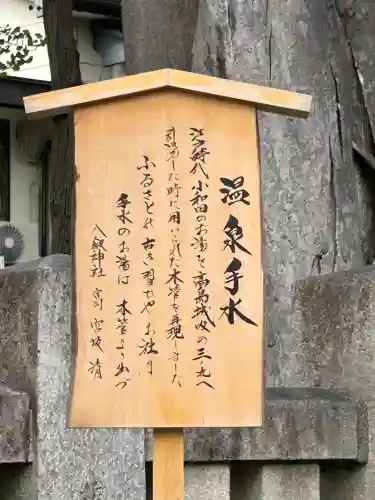 温泉手水
江戸時代 小和田のお湯を高島城内の三ノ丸へ
引湯した時に用いられた木管を再現しました
ふるさとの 古き習ひや お社の
手水のお湯は 木管より出づ
八劔神社 宮司 宮坂 清